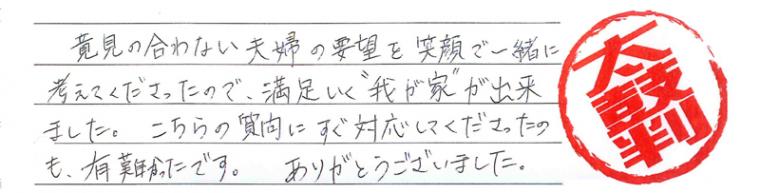 意見の合わない夫婦の要望を笑顔で一緒に
考えてくださったので、満足いく“我が家”が出来
ました。 こちらの質問にすぐ対応してくださったの
も、有難かったです。 ありがとうございました。
太鼓判